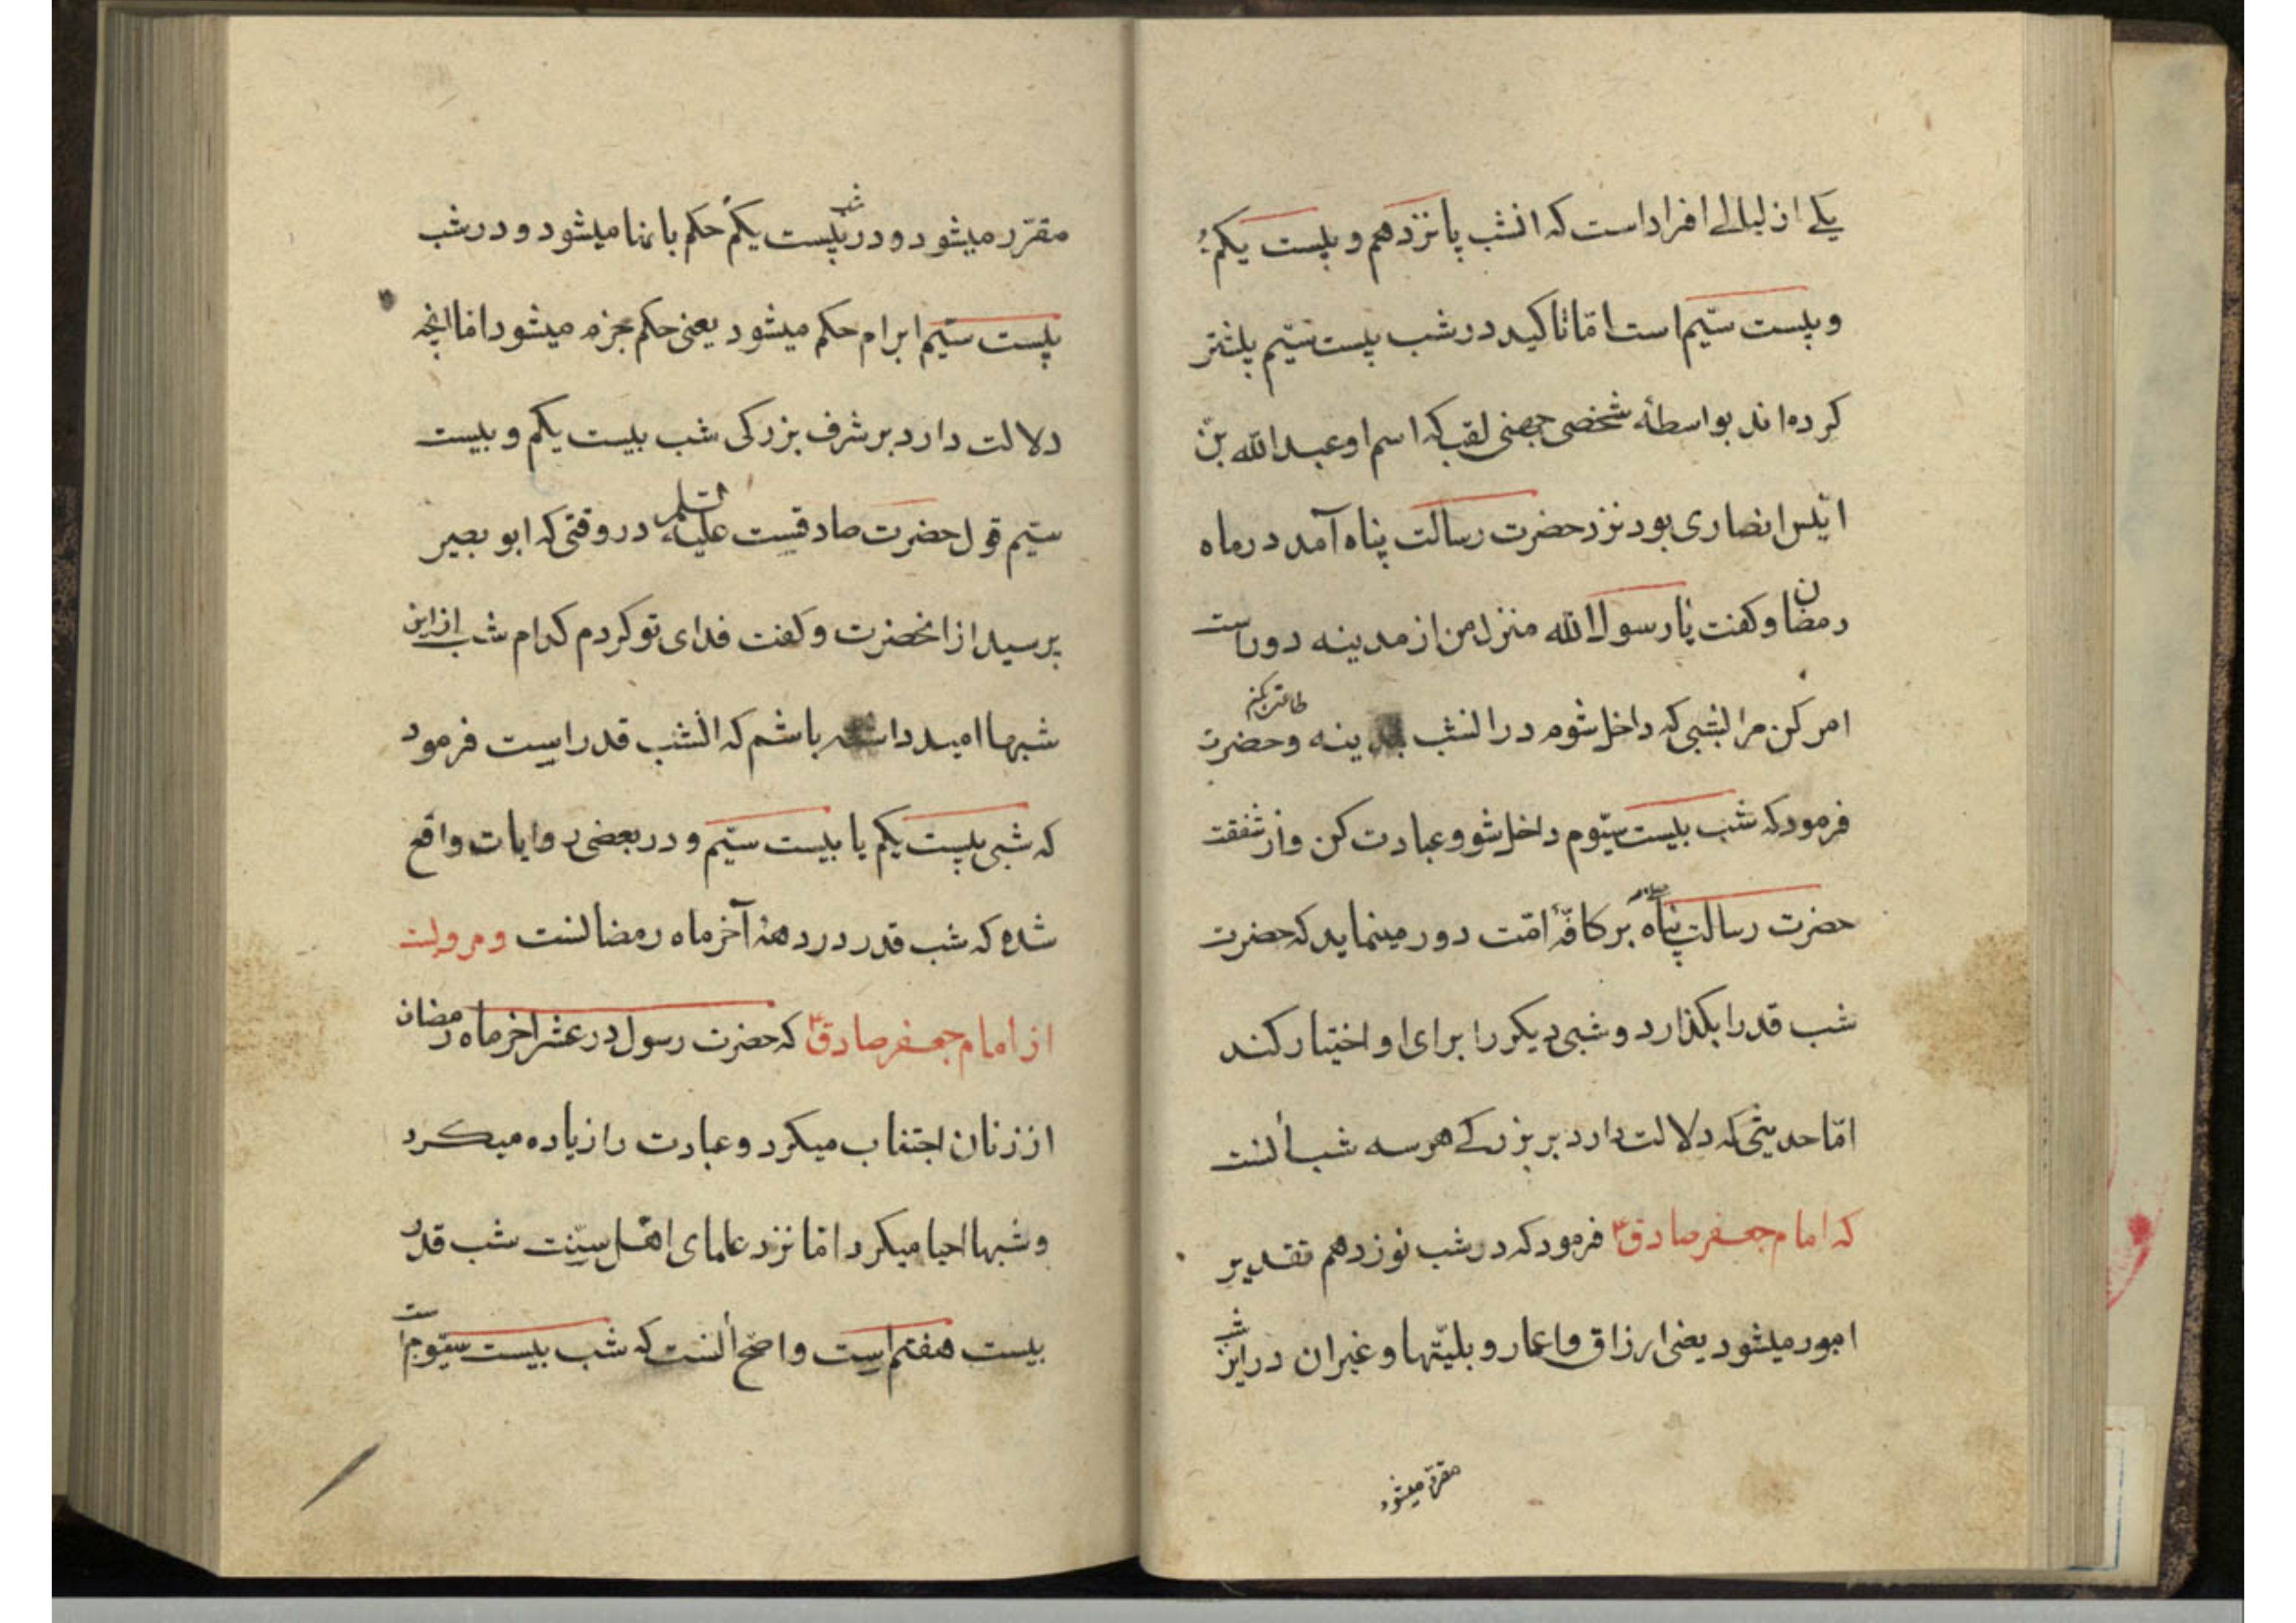 یکے از لیالے افراد است که انشب پانزدهم و بیست یکم
و بیست سیّم است امّا تاکید در شب بیست سیّم بیشتر
کرده‌اند بواسطهٔ شخصی جهنی لقب که اسم او عبد الله بن
انیس انصاری بود نزد حضرت رسالت پناه آمد در ماه
رمضان و کفت یا رسول الله منزل من از مدینه دور است
امر کن مرا بشبی که داخل شوم در انشب بمدینه و حضرت
فرمود که شب بیست سیّوم داخل شو و عبادت کن و از شفقت
حضرت رسالت پناه بر کافّهٔ امّت دور مینماید که حضرت
شب قدر را بکذارد و شبی دیکر را برای او اختیار کند
امّا حدیثی که دلالت دارد بر بزرکے هر سه شب أنست
که امام جعفر صادق ع فرمود که در شب نوزدهم تقدیر
امور میشود یعنی ارزاق و اعمار و بلیّتها و غیر ان در این شب
مقرّر میشود
مقرّر میشود و در شب بیست یکم حکم بانها میشود و در شب
بیست سیّم ابرام حکم میشود یعنی حکم جزم میشود امّا انچه
دلالت دارد بر شرف بزرکی شب بیست یکم و بیست
سیّم قول حضرت صادقست علیه السلم در وقتی که ابو بصیر
پرسید از انحضرت و کفت فدای تو کردم کدام شب از این
شبها امید داشته باشم که انشب قدر است فرمود
که شبی بیست یکم یا بیست سیّم و در بعضی روایات واقع
شده که شب قدر در دههٔ آخر ماه رمضانست و مرویست
از امام جعفر صادق ع که حضرت رسول در عشر اخر ماه رمضان
از زنان اجتناب میکرد و عبادت را زیاده میکرد
و شبها احیا میکرد امّا نزد علمای اهل سنّت شب قدر
بیست هفتم است و اصّح أنست که شب بیست سیّوم است